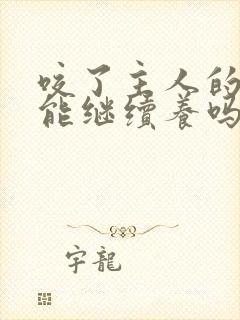 咬了主人的
能继续养吗
宇龍